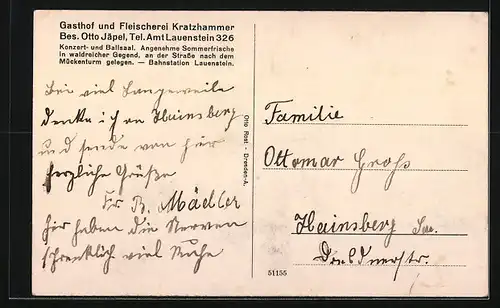 Gasthof und Fleischerei Kratzhammer
Bes. Otto Jäpel, Tel. Amt Lauenstein 326
Konzert- und Ballsaal. Angenehme Sommerfrische
in waldreicher Gegend, an der Straße nach dem
Mückenturm gelegen. — Bahnstation Lauenstein.
Bei viel Langeweile
denke ich an Hainsberg
und sende von hier
herzliche Grüße
Fr. B. Mädler
hier haben die Nerven
schrenklich viel Ruhe
Otto Rost - Dresden-A.
Familie
Ottomar Groß
Hainsberg Sa.
Dresdnerstr.
51155